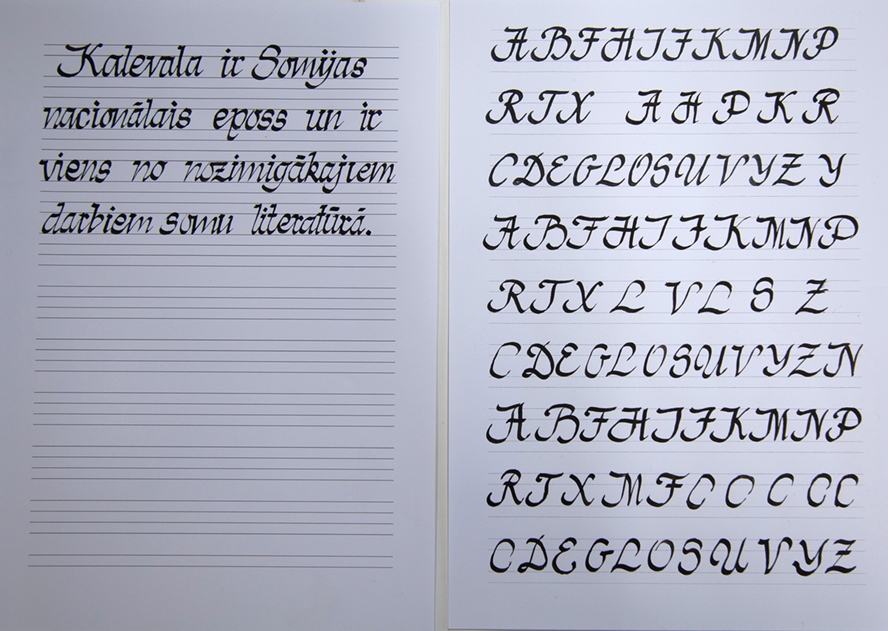 Kalevala ir Somijas
nacionālais eposs un ir
viens no nozimigākajiem
darbiem somu literatūrā.
ABFHIJKMNP
RTX AHPKR
CDEGLOSUVYZ Y
ABFHIJKMNP
RTX L VL S Z
CDEGLOSUVYZN
ABFHIJKMNP
RTXMFC C C CC
CDEGLOSUVYZ